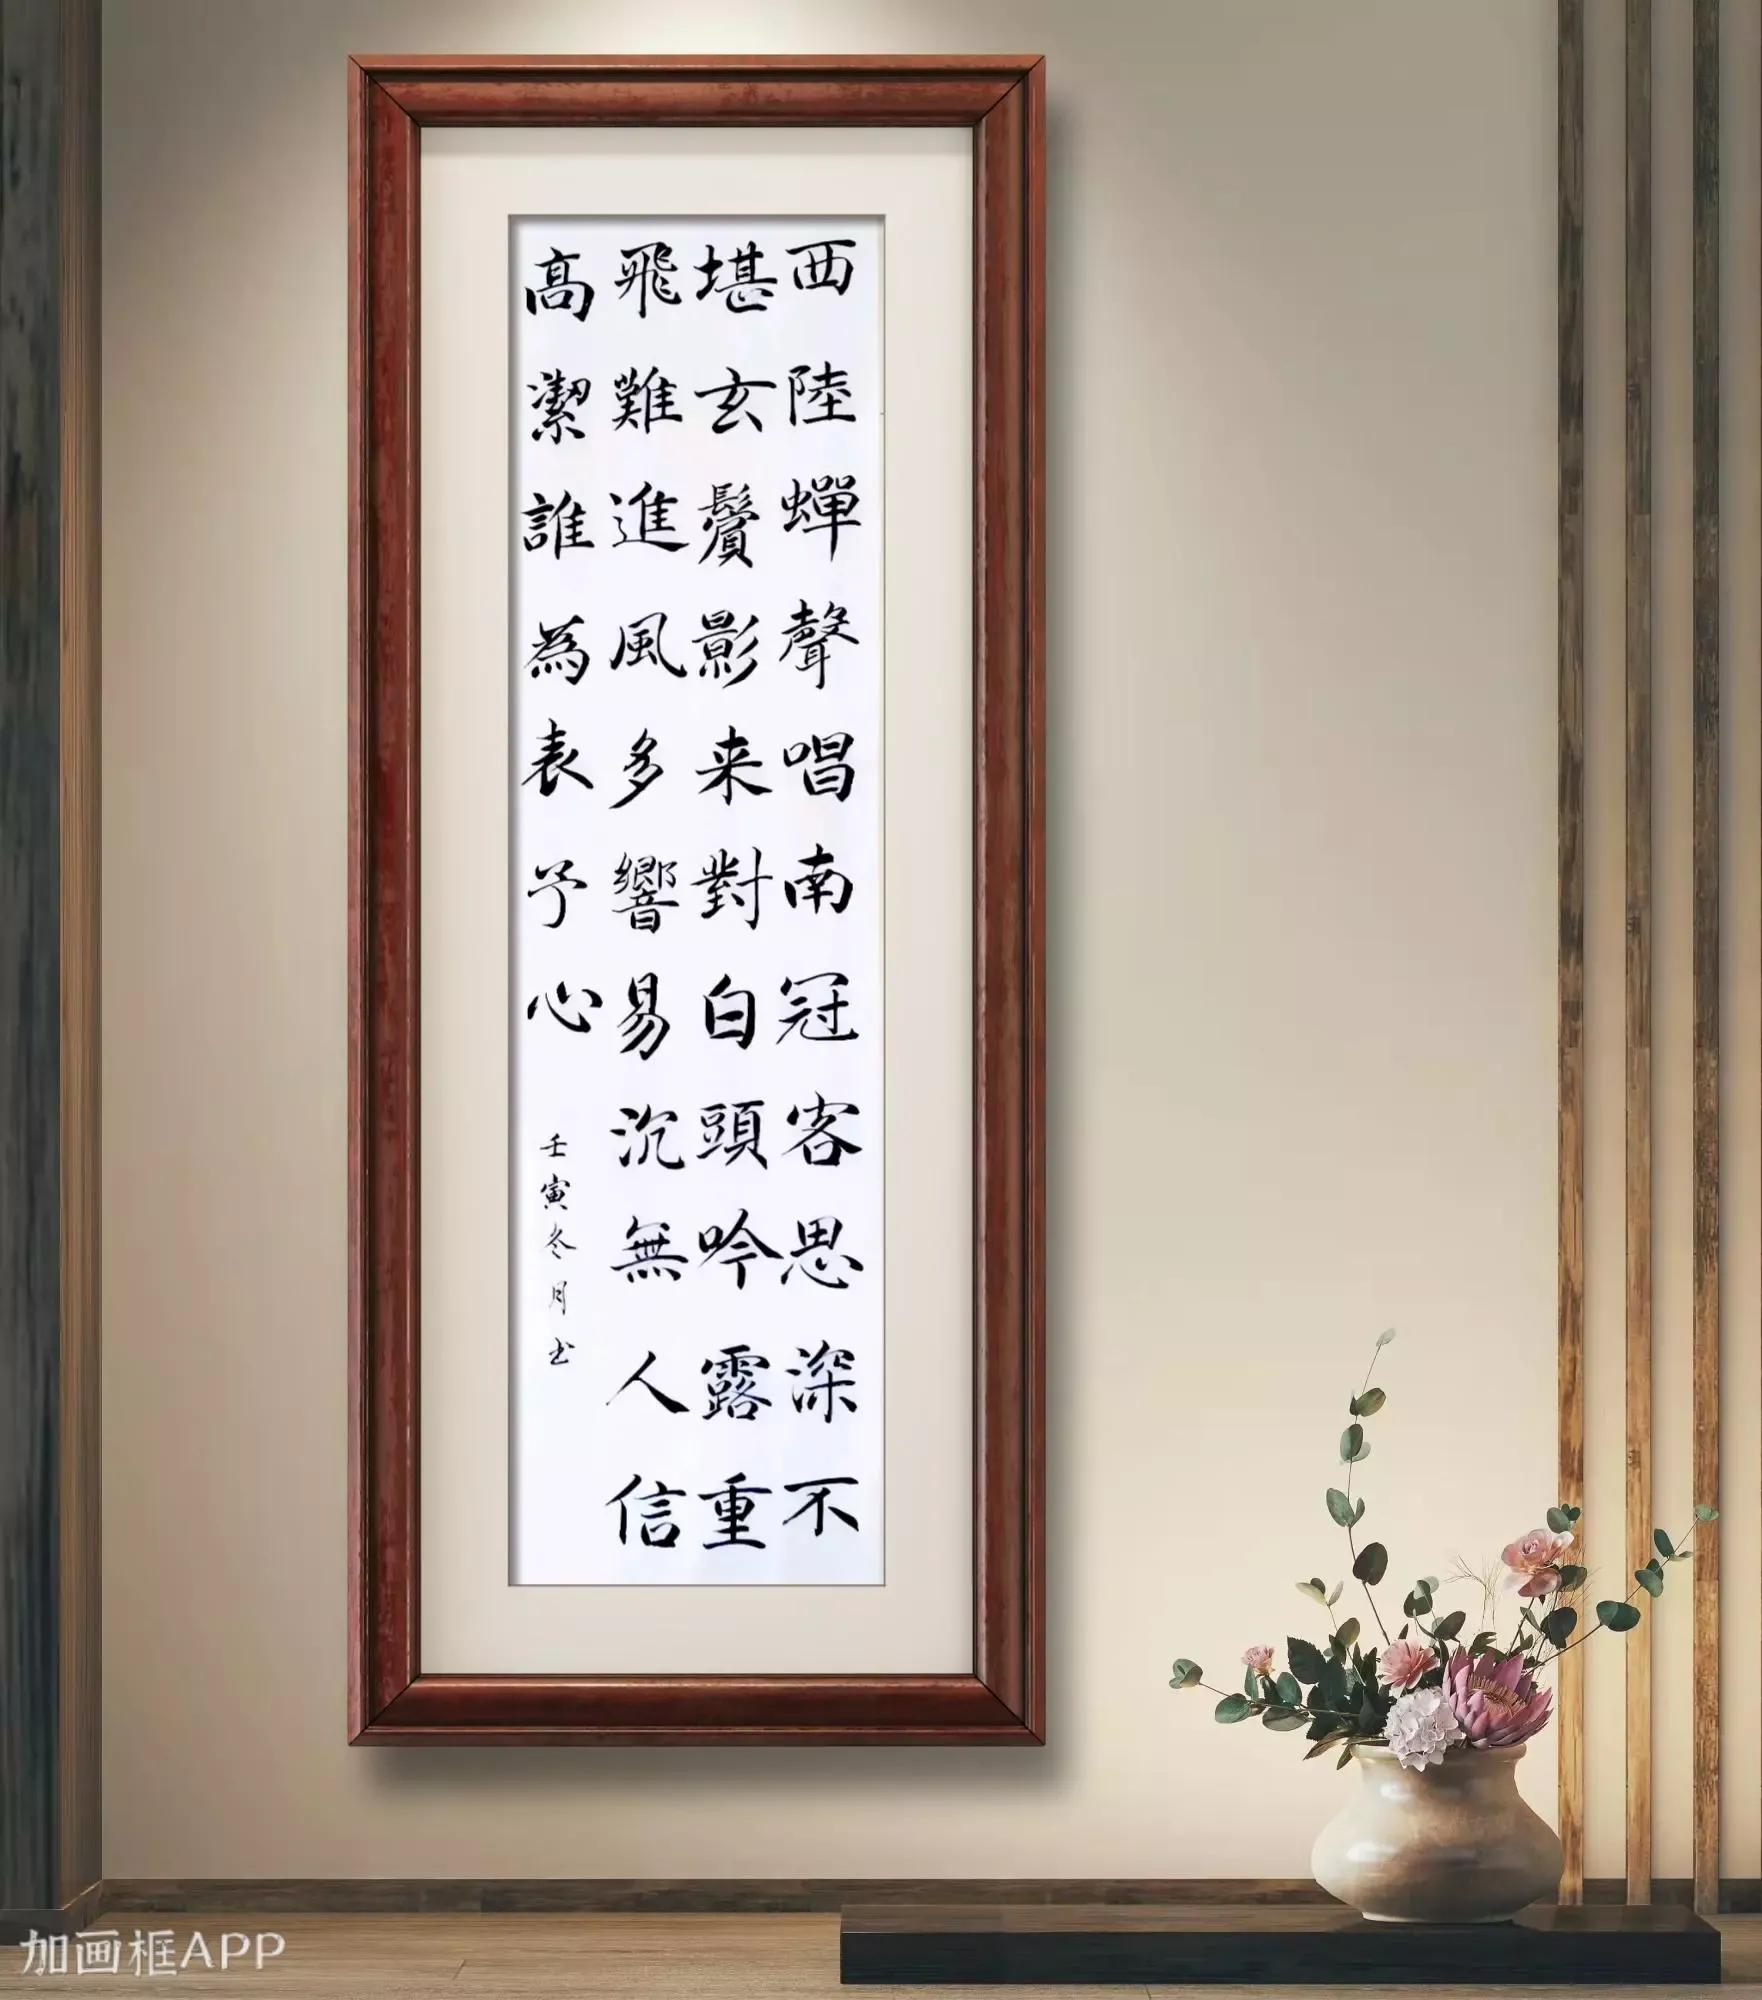 西陸蟬聲唱南冠客思深不
堪玄鬢影来對白頭吟露重
飛難進風多響易沉無人信
高潔誰為表予心
壬寅冬月书
加画框APP